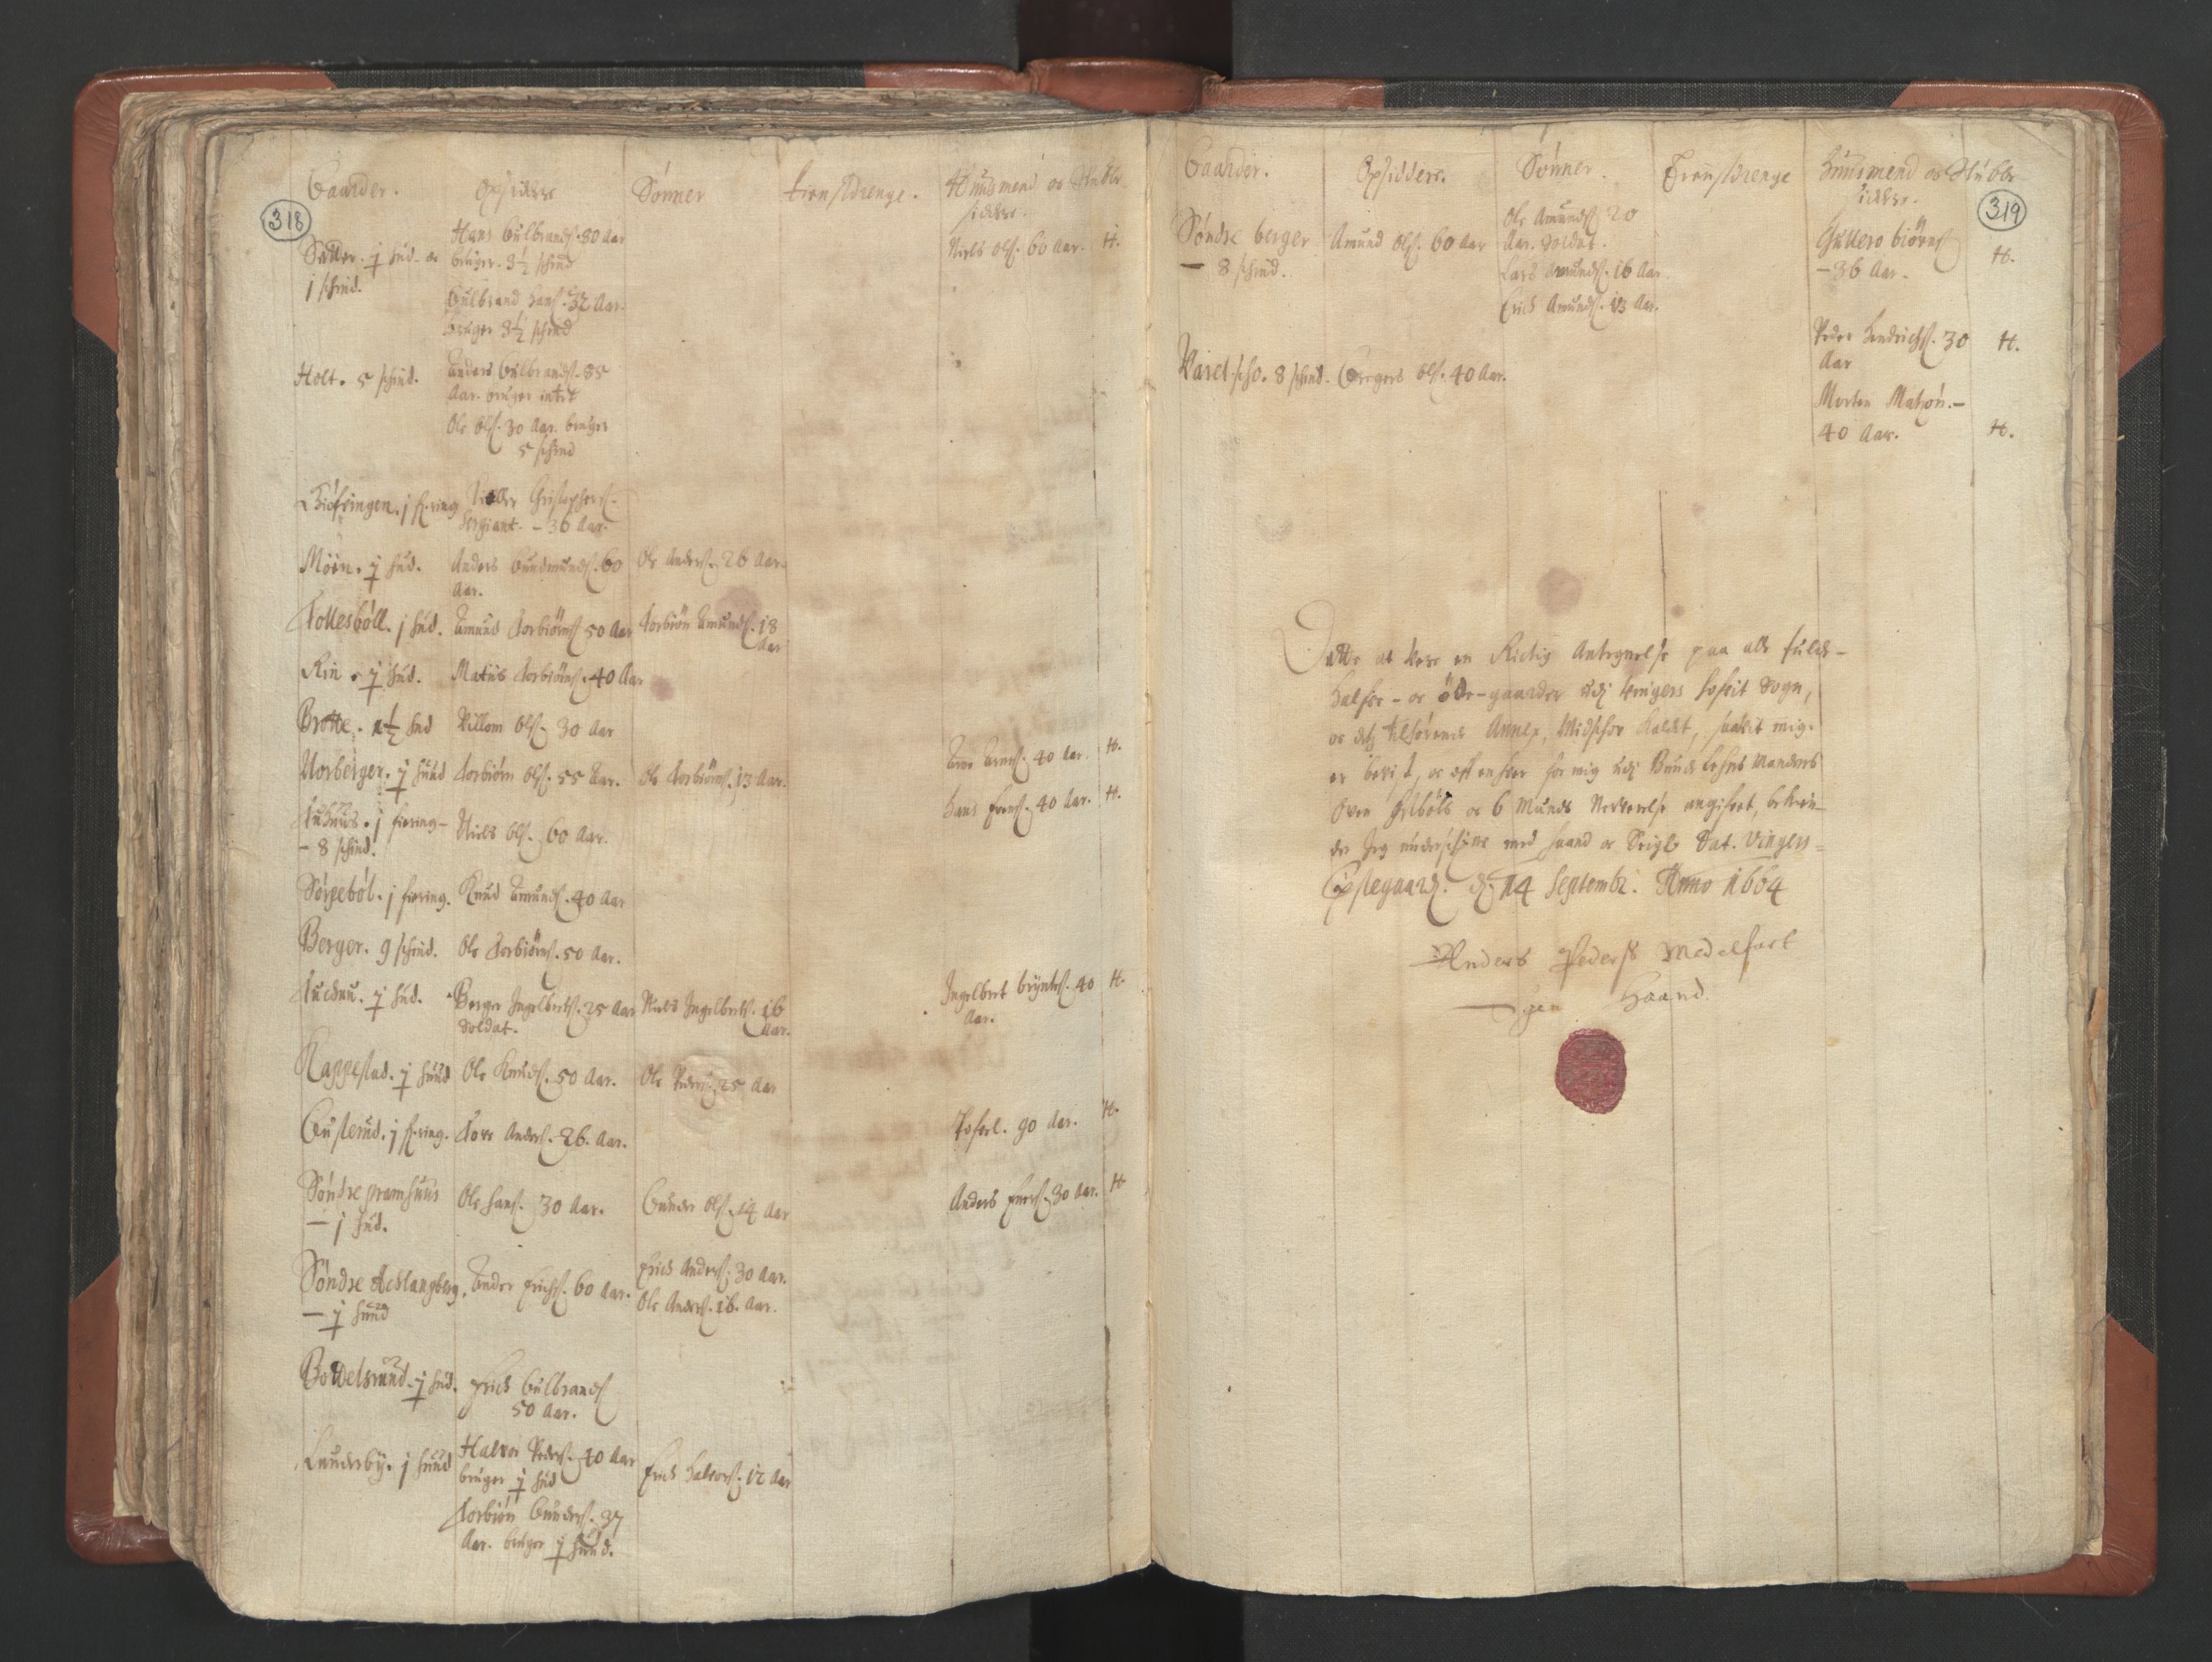 318
Gaarder. Opsiddere Sønner Tienstdrenge. Huusmend oc Stubbe-
siddere.
Sætter. j hud. oc
j schind.
Hans Gulbrandß. 80 Aar
bruger. 3½ schind
Gulbrand Hanß. 32 Aar.
bruger 3½ schind
Niels Olß. 60 Aar. H.
Holt. 5 schind.
Anders Gulbrandß. 85
Aar. bruger intet
Ole Olß. 30 Aar. bruger
5 schind
j fiering
Christophers.
Sergiant. - 36 Aar.
Möen. j hud. Anders Gundmundß. 60
Aar.
Ole Anderß. 26 Aar.
Tollesböll. j hud. Amund Torbiörnß 50 Aar Torbiörn Amundß. 18
Aar
Rin. j hud. Matius Torbiörnß. 40 Aar
Brotte. 1½ hud Villom Olß. 30 Aar
Norberger. j huud Torbiörn Olß. 55 Aar. Ole Torbiörnß. 13 Aar. 40 Aar. H.
j fiering -
- 8 schind. Niels Olß. 60 Aar. Hans 40 Aar. H.
Sörgeböl. j fiering. Knud Amundß. 40 Aar
Berger. 9 schind. Ole Torbiörnß. 50 Aar.
j hud. Berger Ingelbretß. 25 Aar
Soldat.
Niels Ingelbretß. 16
Aar.
Ingelbret bryntß. 40 H.
Aar.
Rappestad. j huud Ole Knudß. 50 Aar. Ole Pederß. 25 Aar
Gusterud. j fiering. Tore Anderß. 26. Aar. 90 Aar. H.
Söndre pramhuus
- j hud.
Ole Hanß. 30 Aar. Gunder Olß. 14 Aar Anders 30 Aar. H.
Söndre Acklangberg.
- j huud
Ander Erichß. 60 Aar.
Erich Anderß. 30 Aar.
Ole Anderß. 16. Aar.
Bowelsrund. j hud. Erich Gulbrandß
50 Aar.
Lunderby. j huud
Halvor Pederß. 40 Aar
bruger j hud
Erich Halvorß. 12 Aar
Torbiörn Gunderß. 37
Aar. bruger j huud.
319
Gaarder. Opsiddere. Sønner. Tienstdrenge Huusmend oc Stubbe-
siddere.
Söndre berger
- 8 schind.
Amund Olß. 60 Aar
Ole Amundß 20
Aar. Soldat.
Lars Amundß. 16 Aar.
Erich Amundß. 13 Aar.
Guttero biörnß
- 36 Aar. H.
8 schind. Gregers Olß. 40 Aar.
Peder Hendrichß. 30
Aar H.
Morten Matzön. -
40 Aar. H.
Dette at vere en Rictig Antegnelse paa alle fulde-
halfve - oc öde - gaarder udj Vingers hofvit Sogn,
oc detz tilhörende Annex, Midschov kaldet, saavit mig.
er bevist, oc for mig udj Bunde Lehns Mandens
Oven oc 6 Mends Nerverelse angifvet, bekien-
der Jeg underschrive med haand oc Seigle Dat. Vingers =
Præstegaard. d. 14 Septembr. Anno 1664
Anders Pederß Medelfart
Egen Haand.